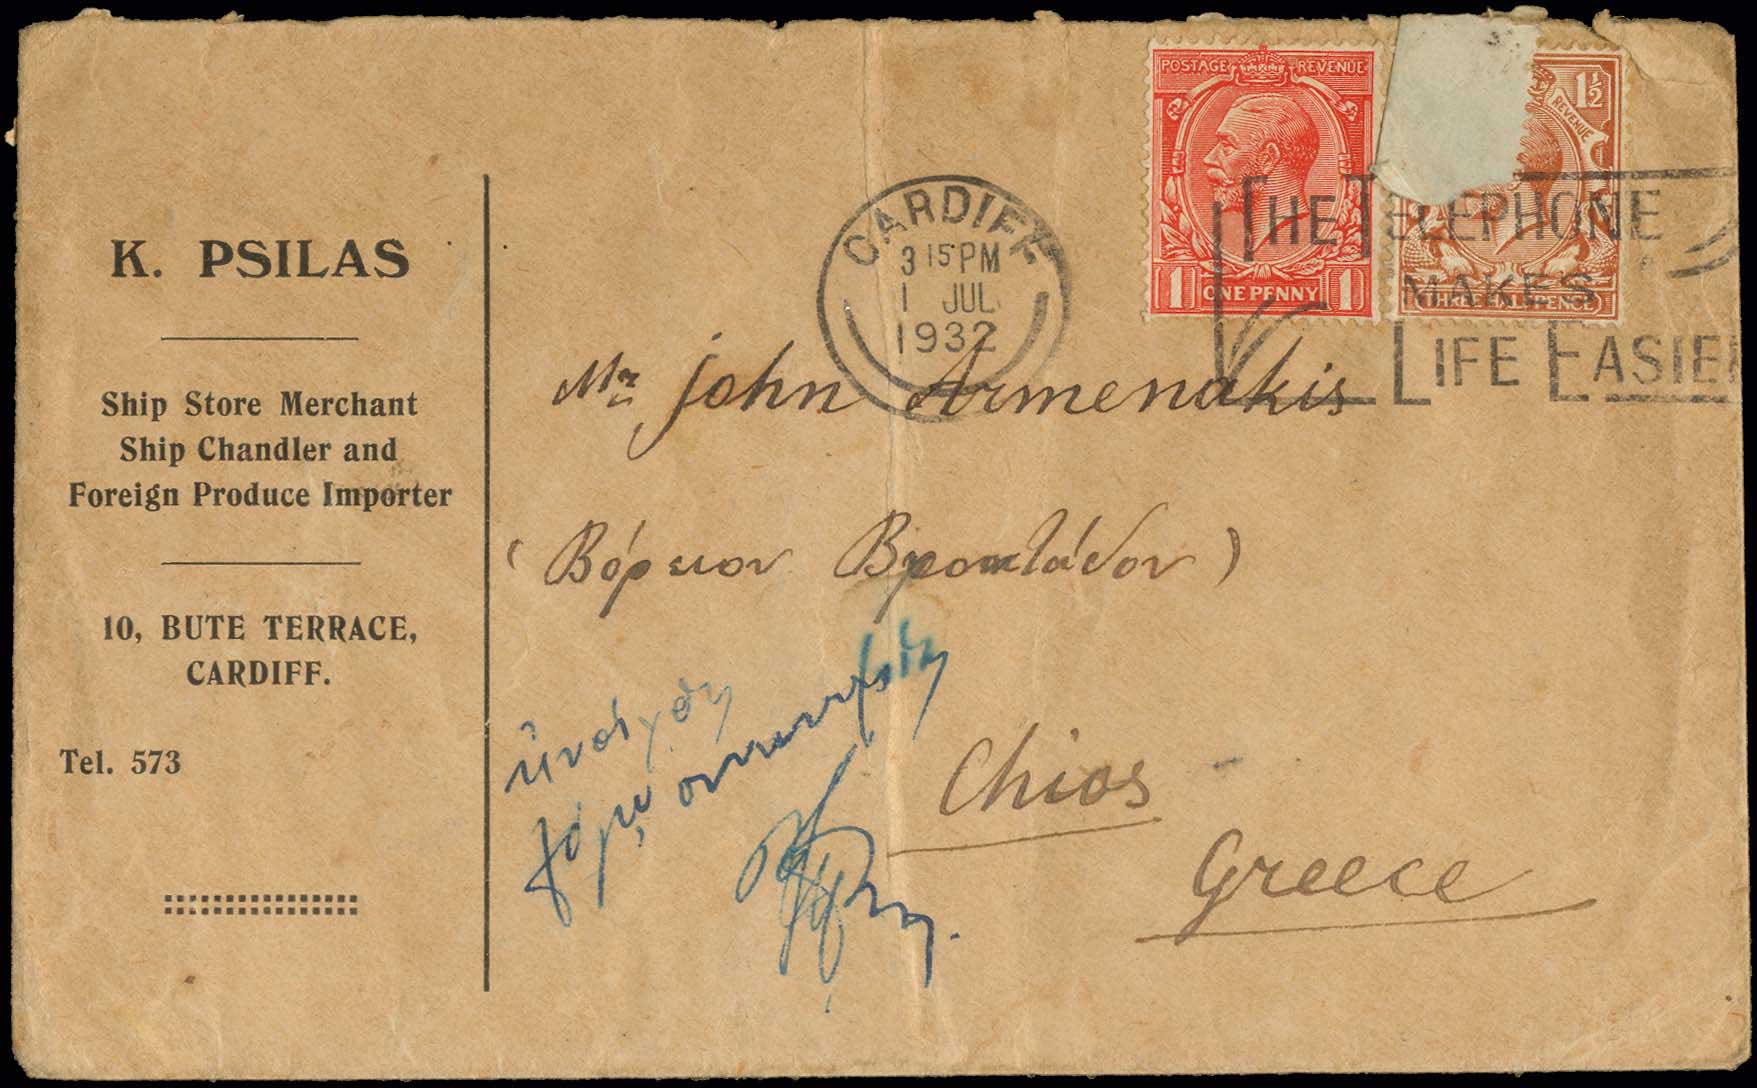 K. PSILAS
Ship Store Merchant
Ship Chandler and
Foreign Produce Importer
10, BUTE TERRACE,
CARDIFF.
Tel. 573
POSTAGE REVENUE
1 ONE PENNY 1
1½
REVENUE
THREE HALFPENCE
CARDIFF
3 15 PM
1 JUL
1932
THE TELEPHONE
MAKES
LIFE EASIER
Mr John Armenakis
(Βόρειον Βροντάδον)
Chios
Greece